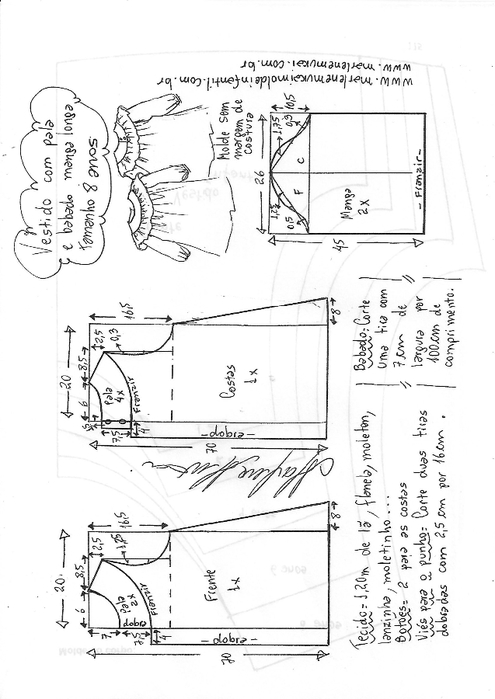 www.marlenemukaimoldeinfantil.com.br
www.marlenemukai.com.br
Vestido com pala
e babado manga longa
tamanho 8 anos
Molde sem
margem de
costura
26
10,5
1,75
0,9
C
F
1,25
0,5
Manga
2x
- Franzir -
45
20
8,5
6
2,5
0,3
16,5
Pala
4x
Franzir
1,5
7,5
4
Costas
1x
- dobra -
70
8
20
8,5
6
2,5
16,5
Pala
2x
dobra
Franzir
7
4
Frente
1x
- dobra -
70
8
Babado: Corte
uma tira com
7cm de
largura por
100cm de
comprimento.
Tecido = 1,20m de lã, flanela, moleton,
lanzinha, moletinho...
Botões = 2 para as costas
Viés para o punho: Corte duas tiras
dobradas com 2,5cm por 16cm.